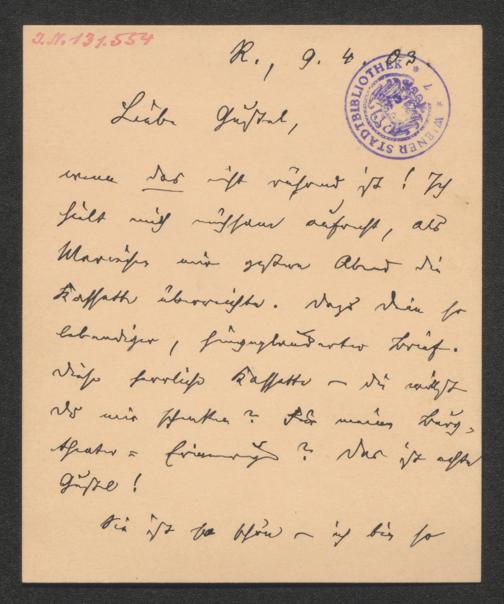 J.N. 131.554
R., 9. 4. 03.
WIENER STADTBIBLIOTHEK * 7 *
Liebe Gustel,
wenn das nicht rührend ist! Ich
hielt mich mühsam aufrecht, als
mir gestern Abend die
Kassette überreichte. Dazu Dein so
lebendiger, hingeplauderter Brief.
Diese herrliche Kassette – die willst
Du mir schenken? Für meine Burg-
theater = Erinnerungen? Das ist echte
Gustel!
Sie ist so schön – ich bin so